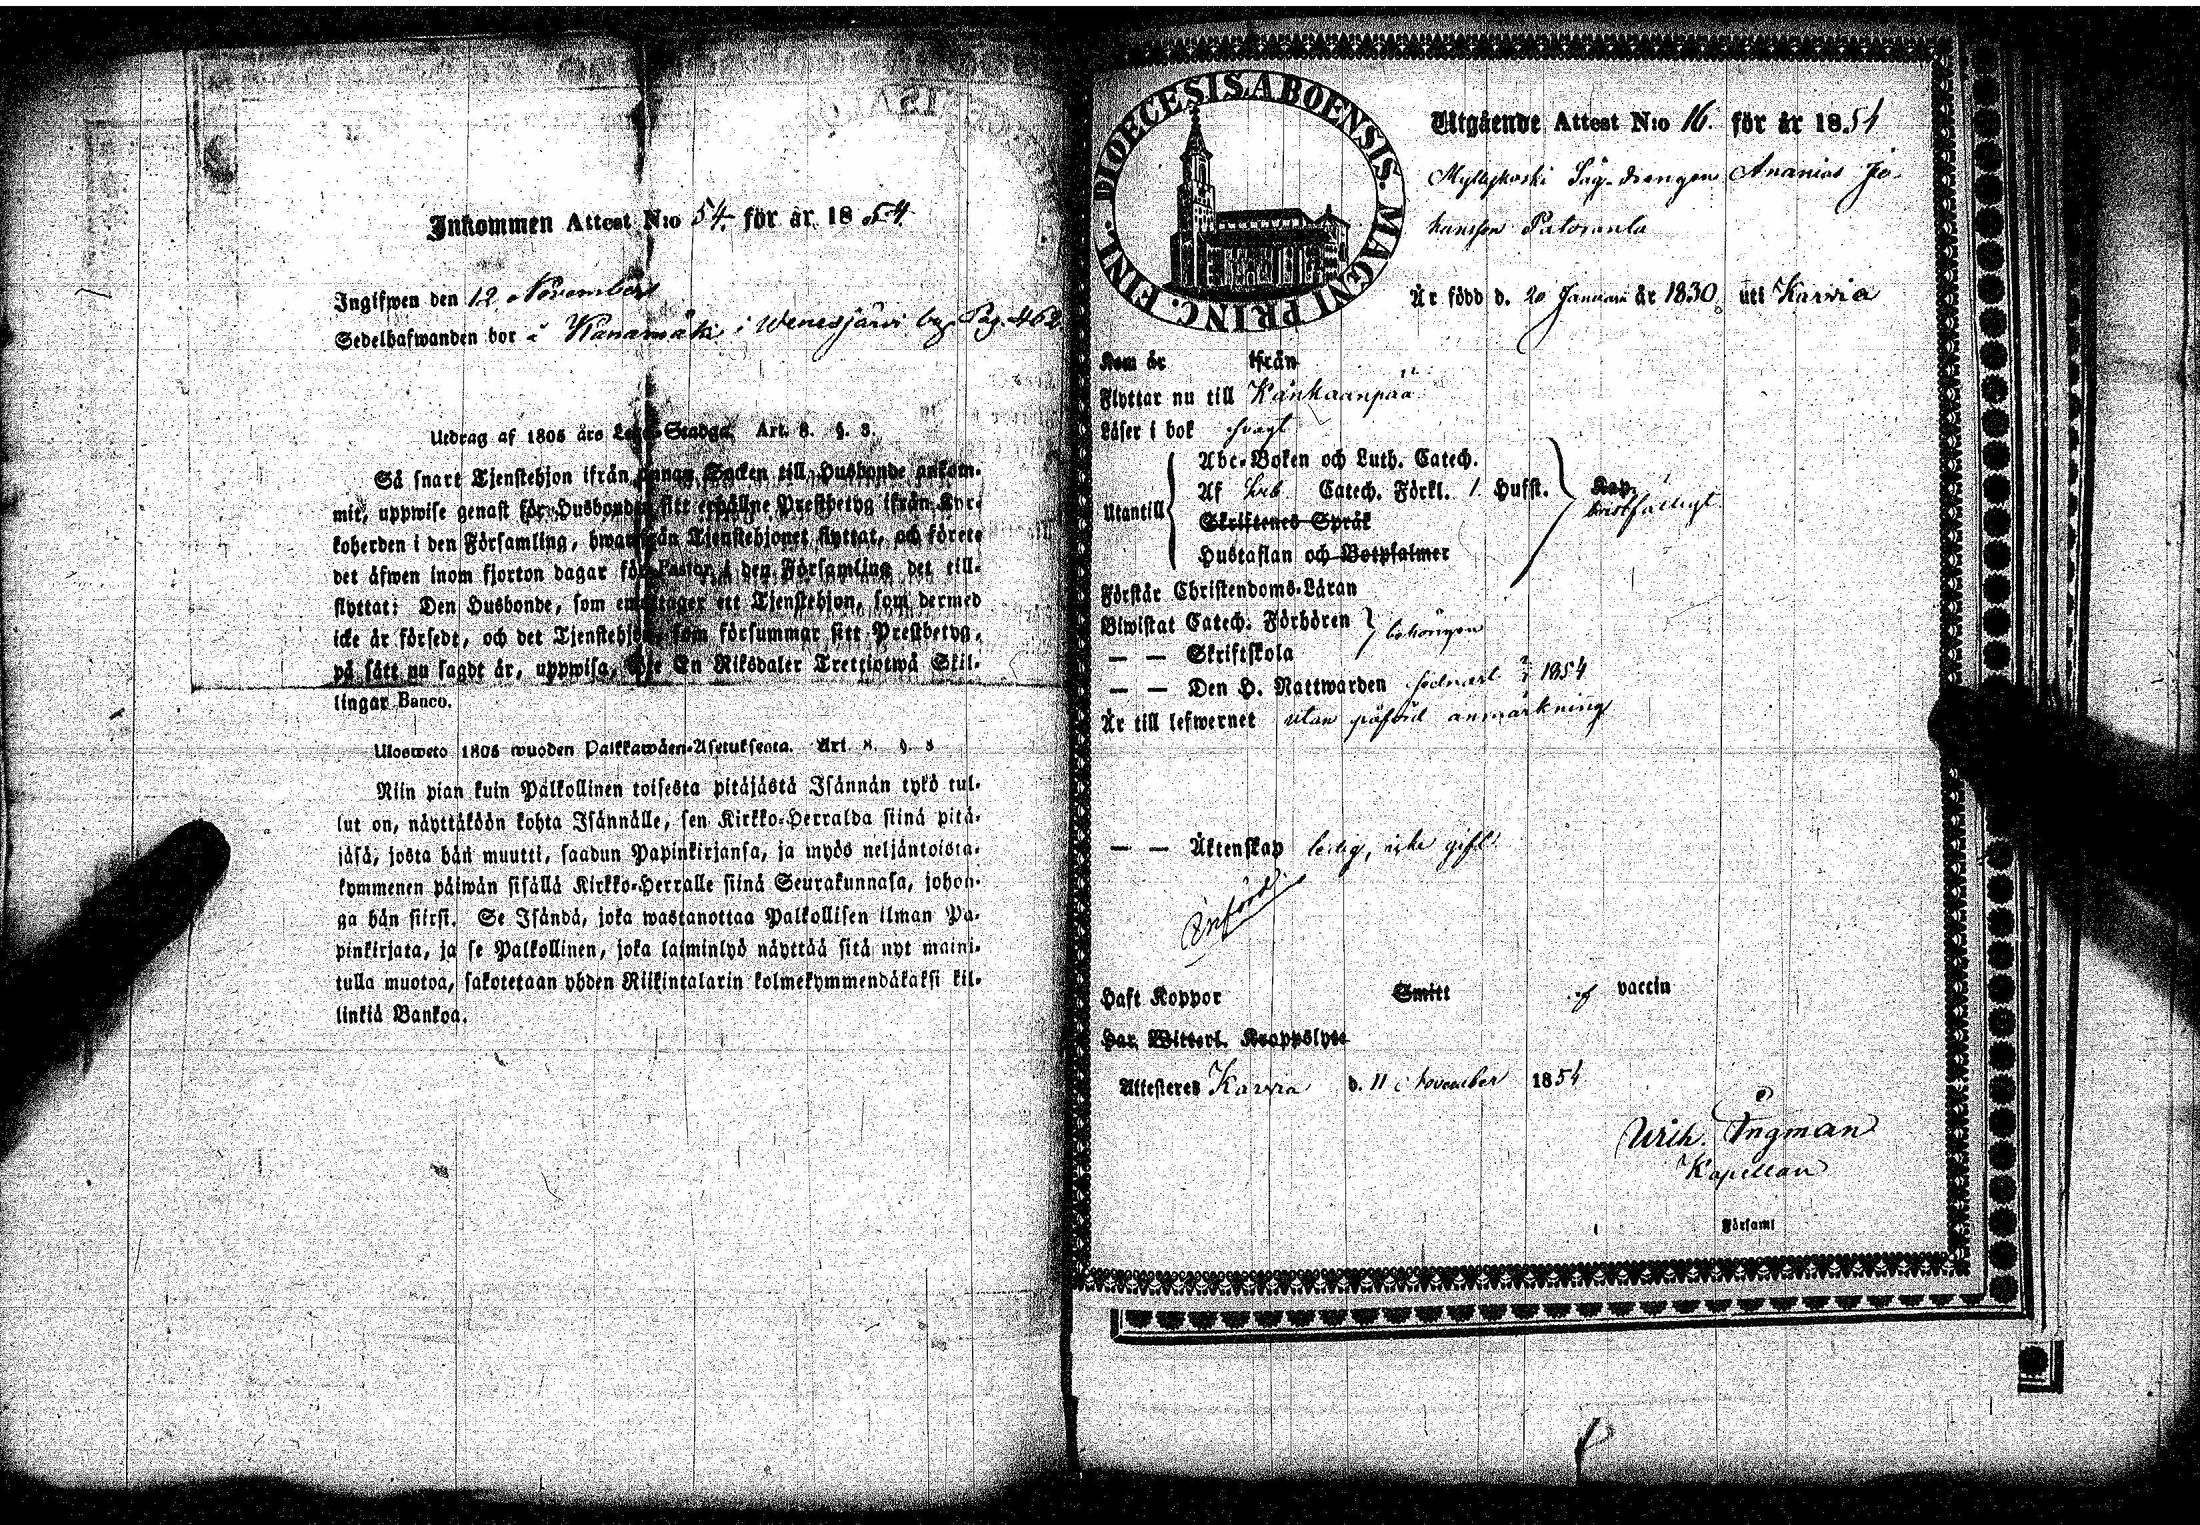 Inkommen Attest N:o 54. för år 1854
Ingifwen den 12 November
Sedelhafwanden bor i Kanamäki i Wenesjärvi by Pag. 462
Utdrag af 1805 års Lego-Stadga, Art. 8. §. 3.
Så snart Tjenstehjon ifrån annan Socken till Husbonde ankom-
mit, uppwise genast för Husbonden sitt erhållne Prestbetyg ifrån Kyr-
koherden i den Församling, hwarifrån Tjenstehjonet flyttat, och förete
det äfwen inom fjorton dagar för Pastor i den Församling det till-
flyttat; Den Husbonde, som emottager ett Tjenstehjon, som dermed
icke är försedt, och det Tjenstehjon, som försummar sitt Prestbetyg,
på sätt nu sagdt är, uppwisa, böte En Riksdaler Trettiotwå Skil-
lingar Banco.
Ulosweto 1805 wuoden Palkkawäen-Asetuksesta. Art. 8. §. 3
Niin pian kuin Palkollinen toisesta pitäjästä Isännän tykö tul-
lut on, näyttäköön kohta Isännälle, sen Kirkko-Herralda siinä pitä-
jäsä, josta hän muutti, saadun Papinkirjansa, ja myös neljäntoista-
kymmenen päiwän sisällä Kirkko-Herralle siinä Seurakunnasa, johon-
ga hän siirsi. Se Isändä, joka wastanottaa Palkollisen ilman Pa-
pinkirjata, ja se Palkollinen, joka laiminlyö näyttää sitä nyt maini-
tulla muotoa, sakotetaan yhden Riikintalarin kolmekymmendäkaksi kil-
linkiä Bankoa.
DIOECESIS ABOENSIS. MAGNI PRINC. FINL.
Utgående Attest N:o 16. för år 1854
Myllykoski Såg-drengen Ananias Jo-
hansson Patoranta
Är född d. 20 Januari år 1830 uti Karvia
Kom år ifrån
Flyttar nu till Kankaanpää
Läser i bok svagt
Utantill
Abc-Boken och Luth. Catech.
Af Catech. Förkl. 1. Hufst.
Skriftenes Språk
Hustaflan och Botpsalmer
Kap.
bristfälligt
Förstår Christendoms-Läran
Biwistat Catech. Förhören
behörigen
— — Skriftskola
— — Den H. Nattwarden sednast 1854
Är till lefwernet utan påförd anmärkning
— — Äktenskap ledig, icke gift
Införd
Haft Koppor Smitt af vaccin
Har Witterl. Kroppslyte
Attesteres Karvia d. 11 November 1854
Wilh. Ingman
Kapellan
Församl